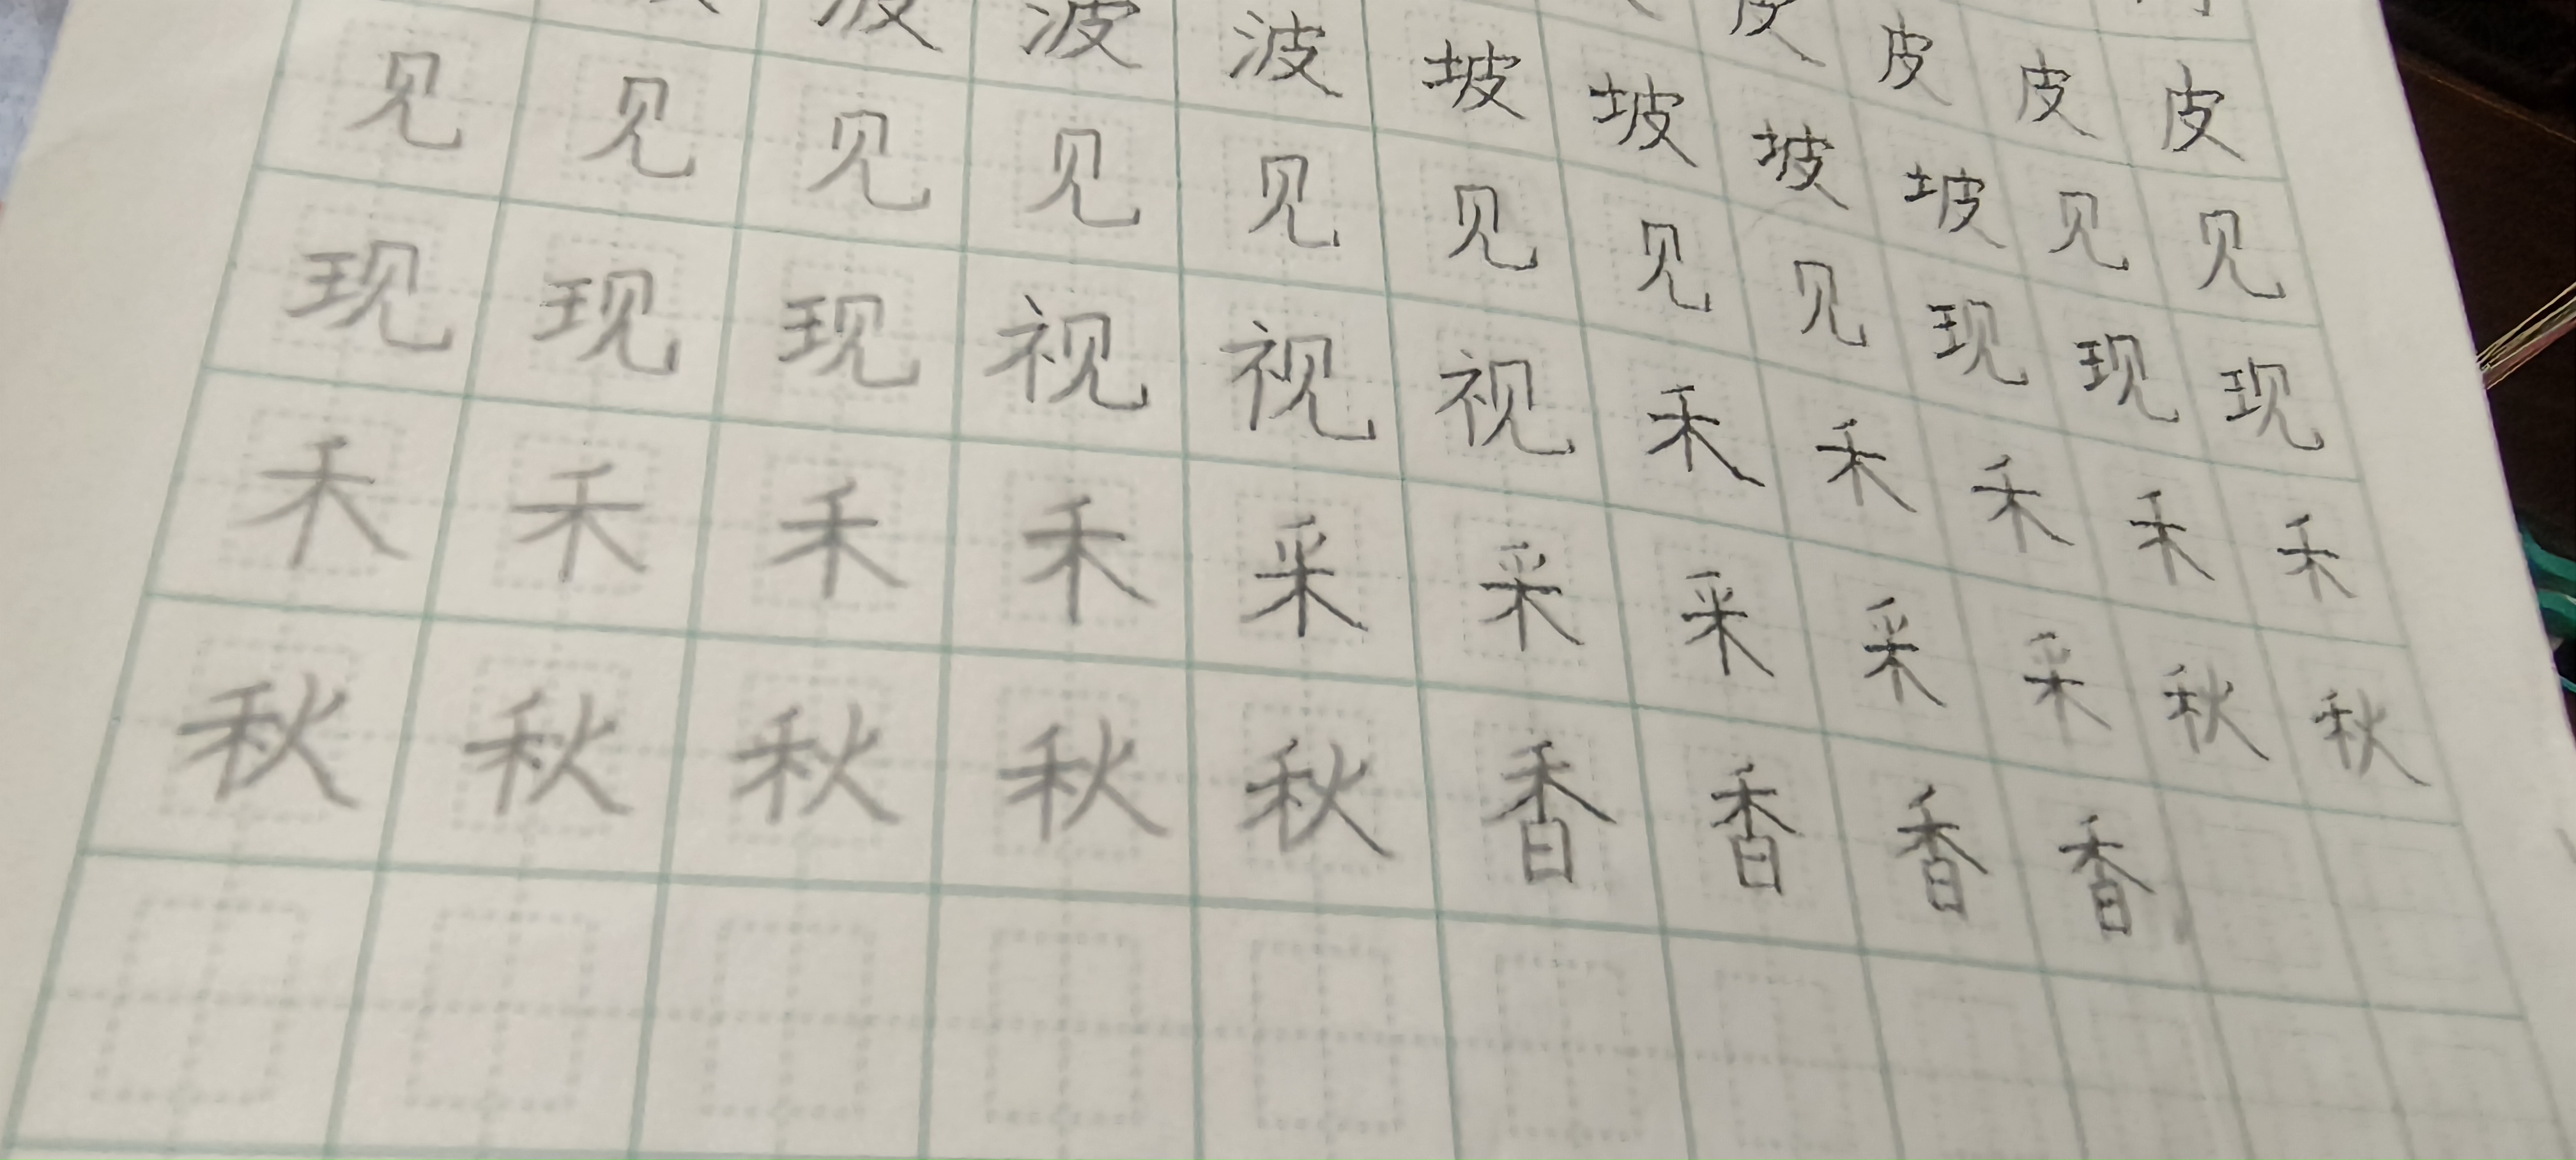 皮 皮 皮 皮
波 波 波 坡 坡 坡 坡 见 见
见 见 见 见 见 见 见 见 现 现 现
现 现 现 视 视 视 禾 禾 禾 禾 禾
禾 禾 禾 禾 采 采 采 采 采 秋 秋
秋 秋 秋 秋 秋 香 香 香 香